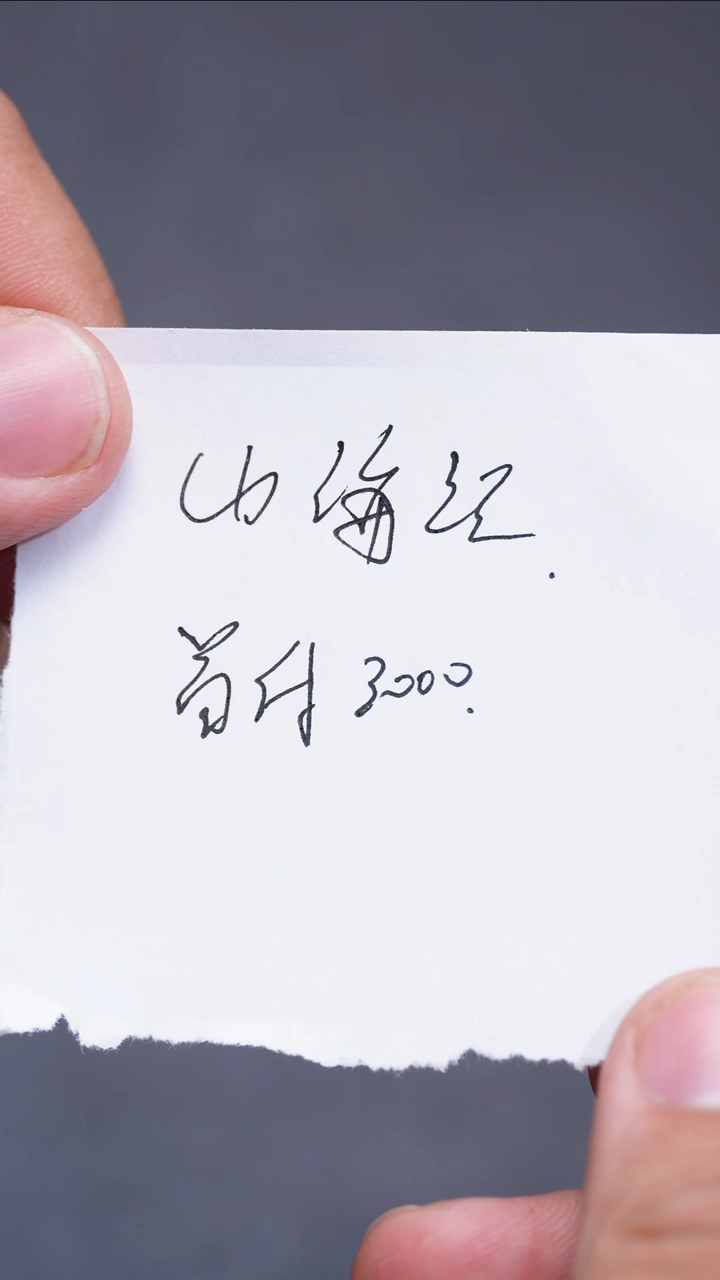 山海经.
首付3000.